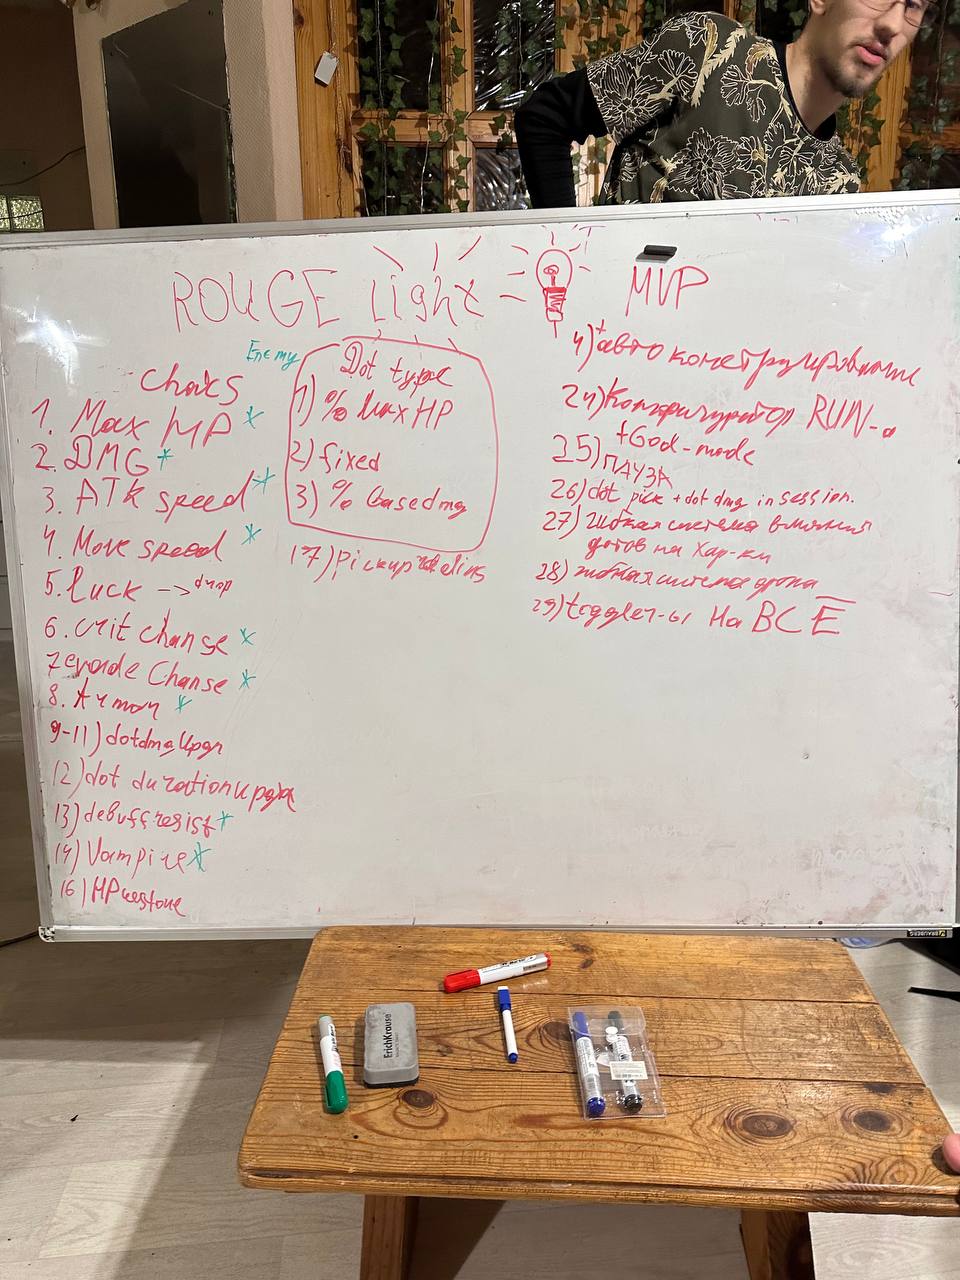 ROUGE Light
MVP
Enemy
Choiks
1. Max HP *
2. DMG *
3. ATK speed *
4. Move speed *
5. Luck -> drop
6. crit change *
7 evade Chanse *
8. Armor *
9-11) dotdmg Upgr
12) dot duration upgr
13) debuff resist *
14) Vampire *
16) HP restore
Dot type
1) % Max HP
2) fixed
3) % base dmg
17) Pickup
4) + авто конструирование
24) Конфигуратор RUN-а
+ God-mode
25) ПАУЗА
26) dot pick + dot dmg in session.
27) гибкая система влияния
дотов на хар-ки
28) гибкая система дропа
29) toggler-ы на ВСЕ
BRAUBERG
ErichKrause